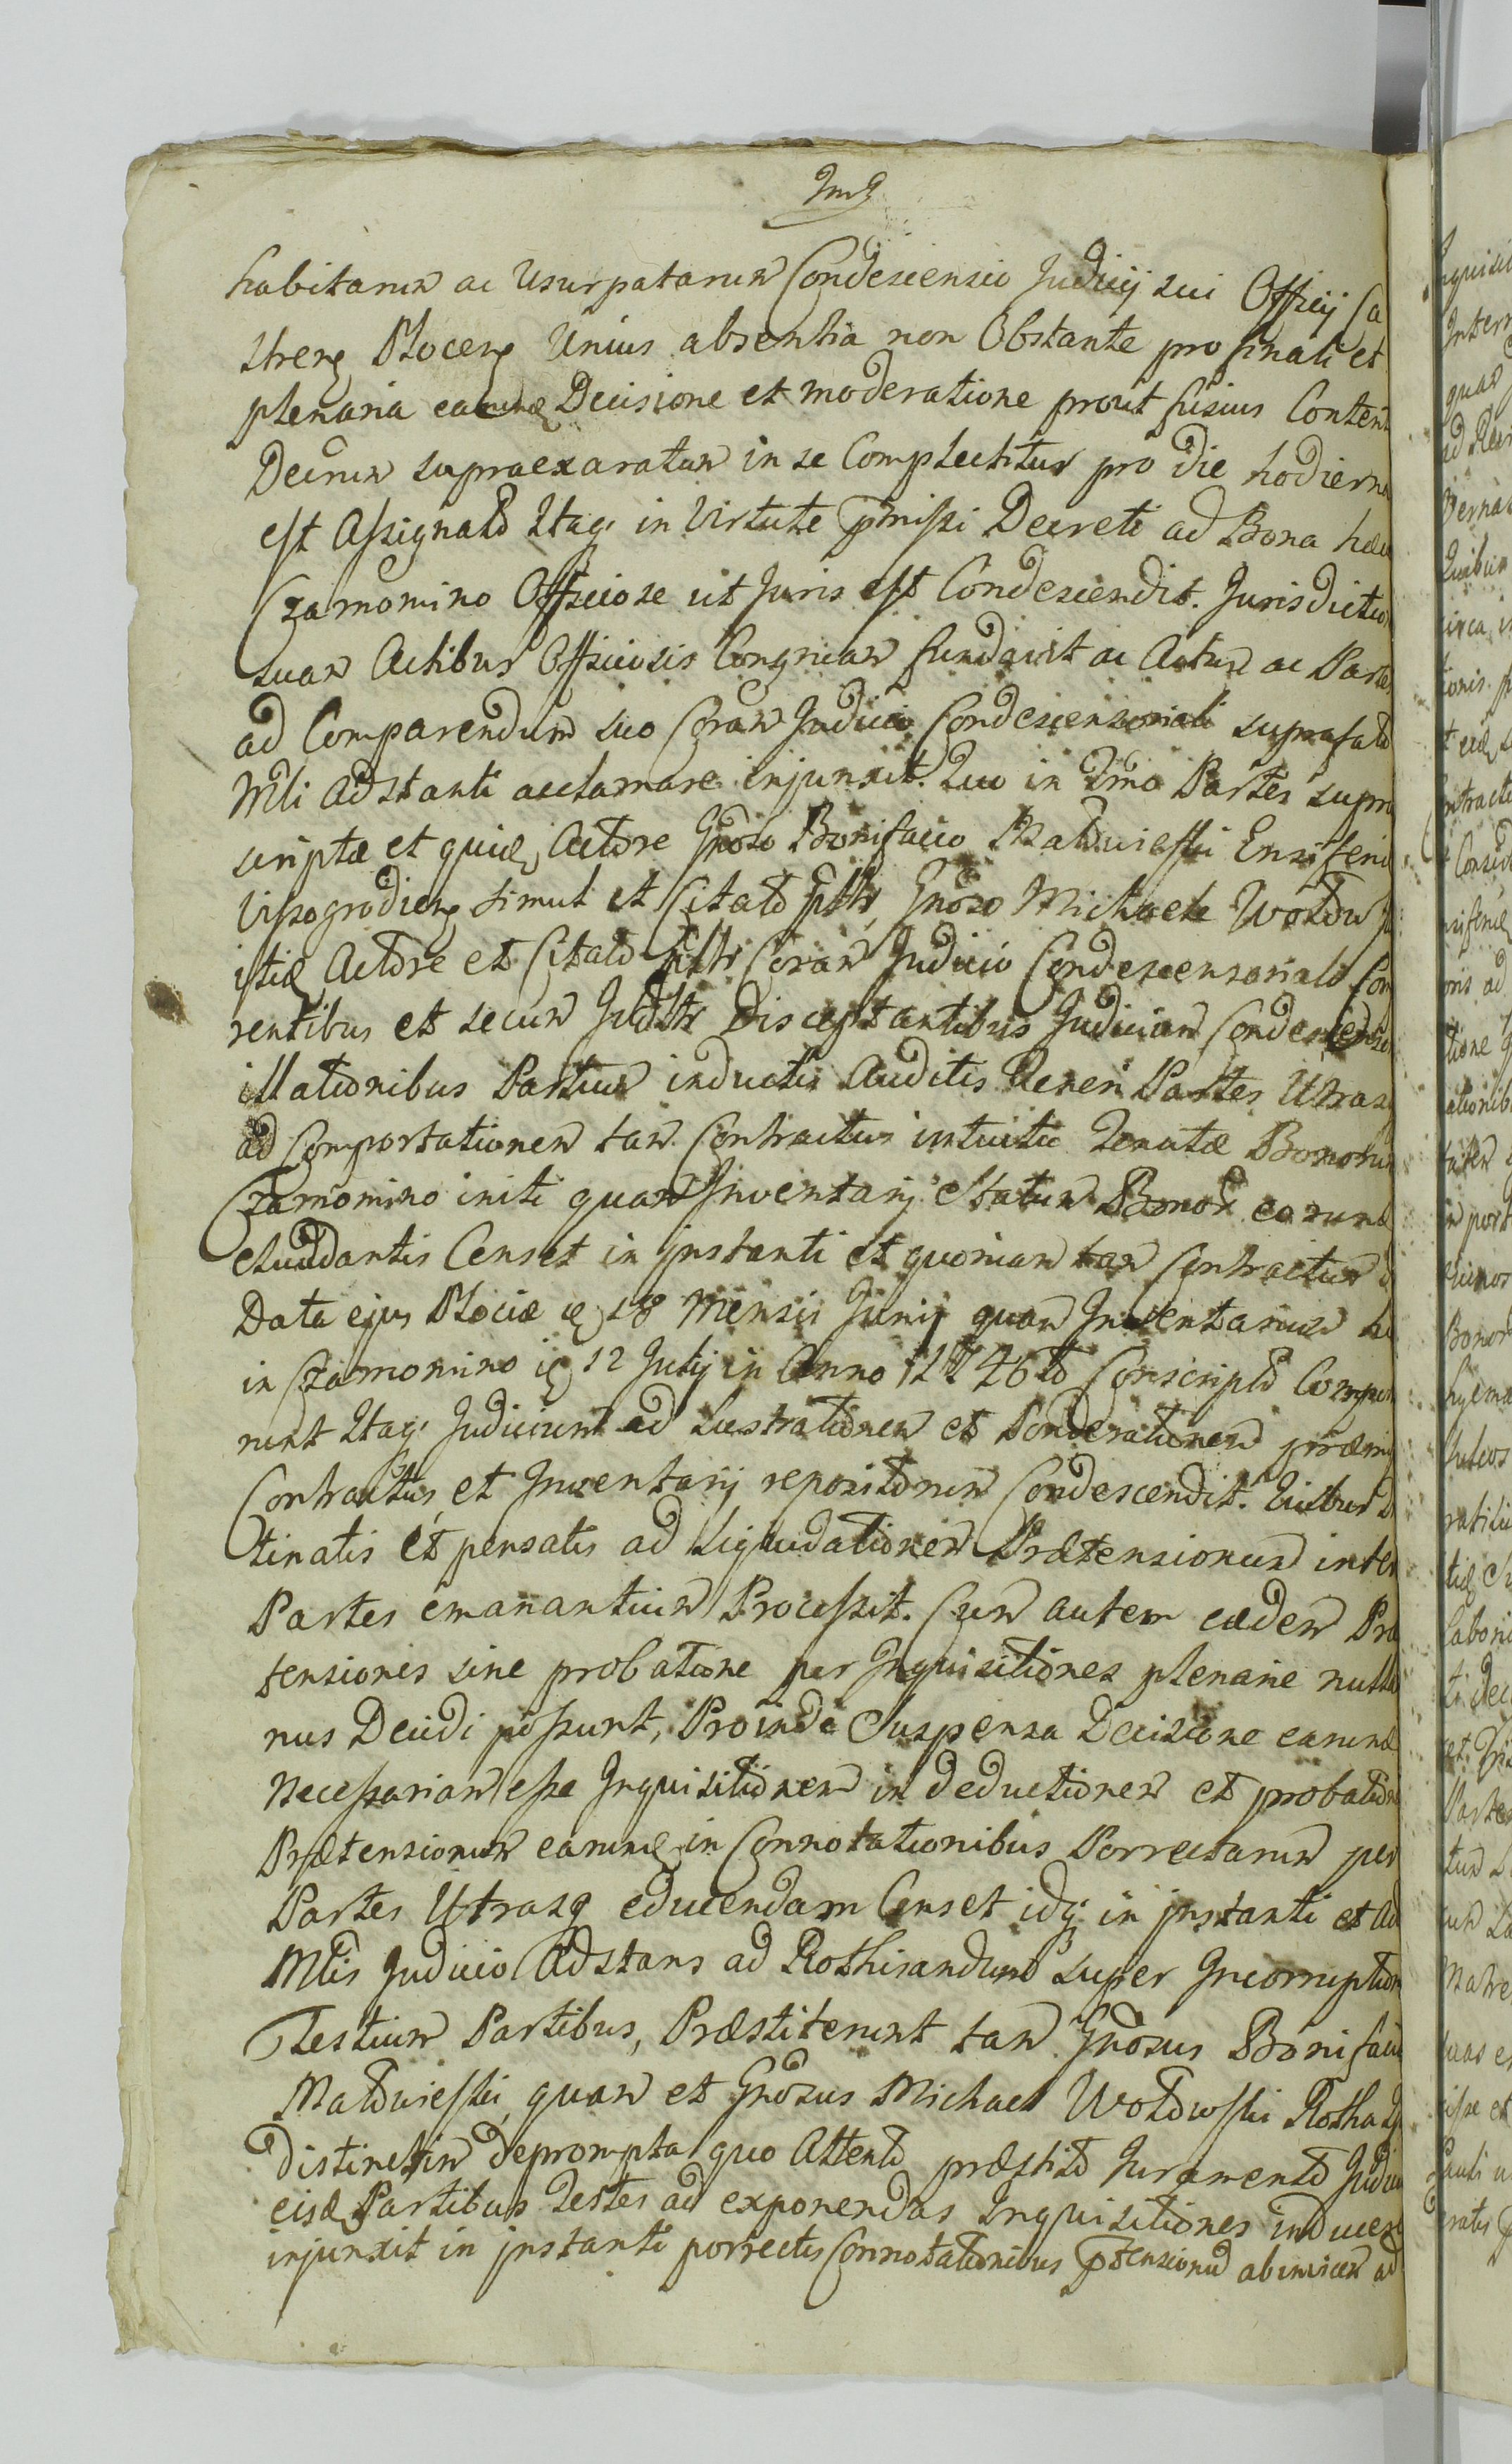 habitarum ac Usurpatarum Condescensio Judicij sui Officij Ca
stren Plocen Unius absentia non Obstante pro finali et
plenaria earund Decisione et moderatione prout fusius Content
Decrum supraexaratum in se Complectitur pro die hodierna
est Assignato Itaq in Virtute pmissi Decreti ad Bona haec
Czamomino Officiose ut Juris est Condescendit. Jurisdictio
suam Actibus Officiosis Congruam fundavit ac Actum ac Partes
ad Comparendum suo Coram Judicio Condescensoriali suprafato
Mtli Adstanti acclamare injunxit. Quo in Tmo Partes supra
scriptæ et quid Actore Gnoso Bonifacio Matdwieski Ensifero
Vissogrodien simul et Citato Gnoso Michaele Wotdw
Actore et Citato Coram Judicio Condescensoriali Com
rentibus et secum Disceptantibus Judicium Condescenso
illationibus Partium inductis Auditis teneri Partes Utrasq
ad Comportationem tam Contractus intuitu Tenutæ Bonorum
Czamomino initi quam Inventarij Statum Bonor earund
elucidantis Censet in instanti et quoniam tam Contractum
Data ejus Plociæ 18 Mensis Junij quam Inventarium
in Czamomino 12 Julij in Anno 1746to Conscripto Compor
runt Itaq Judicium ad Lustrationem et Ponderationem præmis
Contractus et Inventarij repositorum Condescendit. Quibus
tinatis et pensatis ad Liquidationem Prætensionum inter
Partes emanantium Processit. Cum autem eædem Præ
tensiones sine probatione per Inquisitiones plenarie nulla
nus Decidi possunt, Proinde Suspensa Decisione earund
Necessariam esse Inquisitionem in deductionem et probation
Prætensionum earund in Connotationibus Porrectarum per
Partes Utrasq educendam Censet idq in instanti et Ad
Mtlis Judicio Adstans ad Rothisandum super Incorruption
Testium Partibus, Præstiterunt tam Gnosus Bonifaciu
Matdwieski quam et Gnosus Michael Wotdwski Rotha
distinctim deprompta quo Attento præstito Juramento Judiciu
eisd Partibus Testes ad exponendas Inquisitiones inducere
injunxit in instanti porrectis Connotationibus ptensionu abinvicem ad